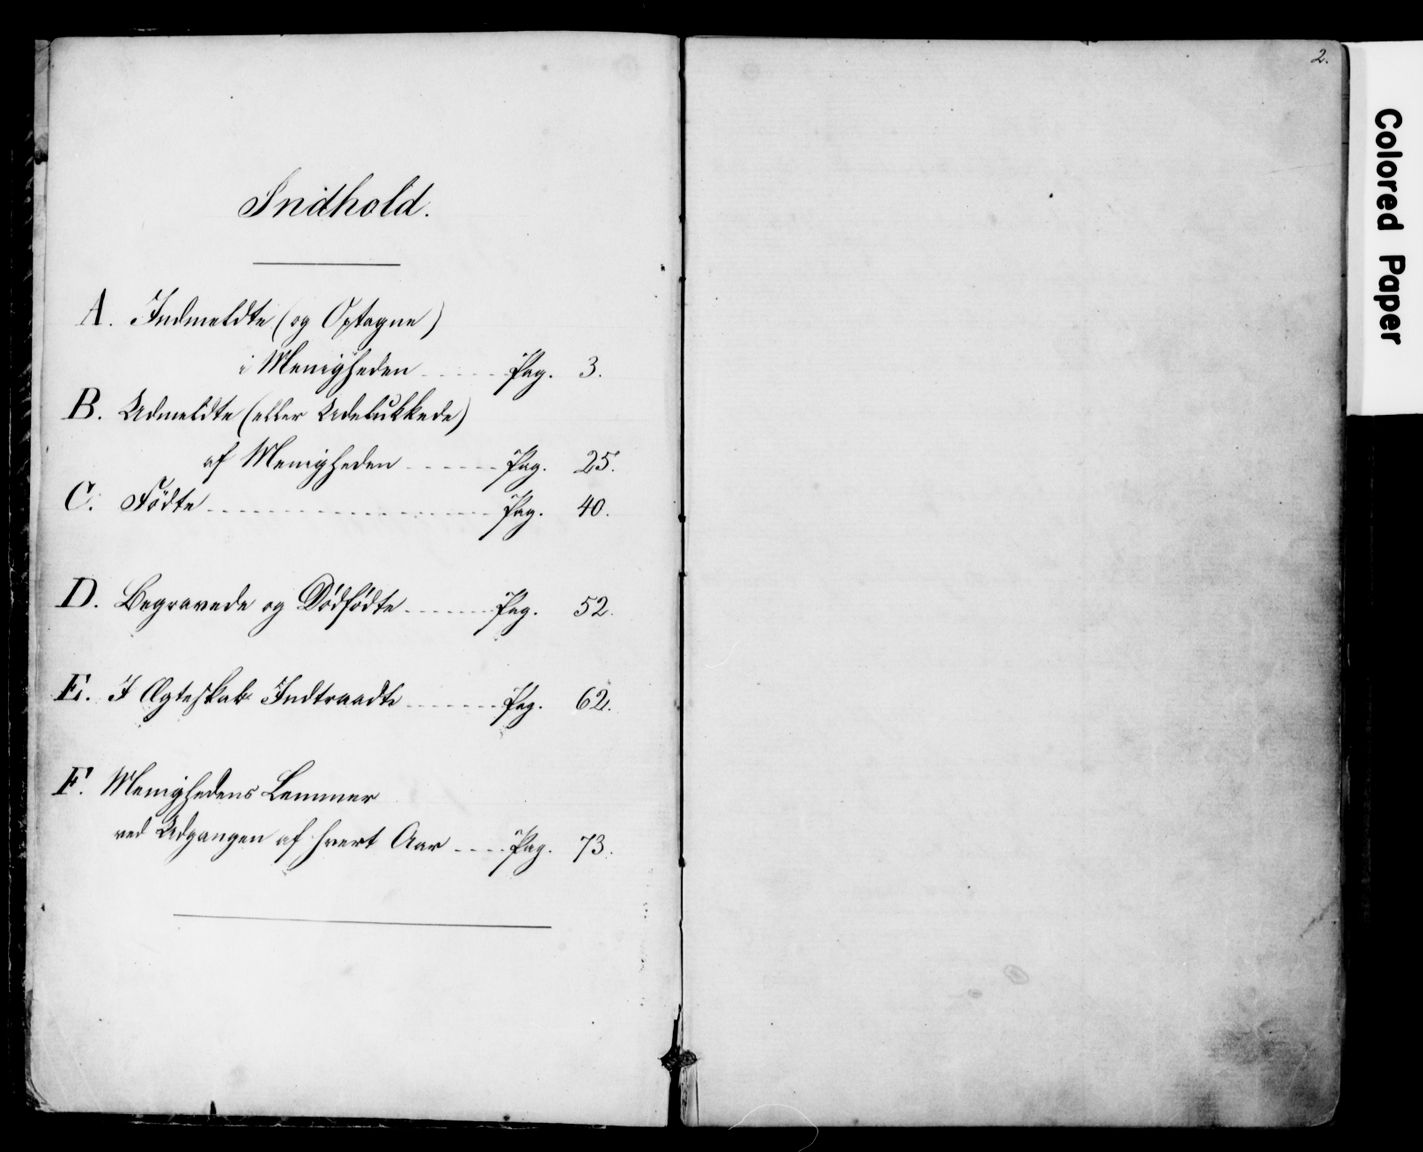 Indhold.
A. Indmeldte (og Optagne)
i Menigheden ...... Pag. 3.
B. Udmeldte (eller Udelukkede)
af Menigheden ...... Pag. 25.
C. Fødte ...... Pag. 40.
D. Begravede og Dødfødte ...... Pag. 52.
E. I Ægteskab Indtraadte ...... Pag. 62.
F. Menighedens Lemmer
ved Udgangen af hvert Aar .... Pag. 73.
2.
Colored Paper